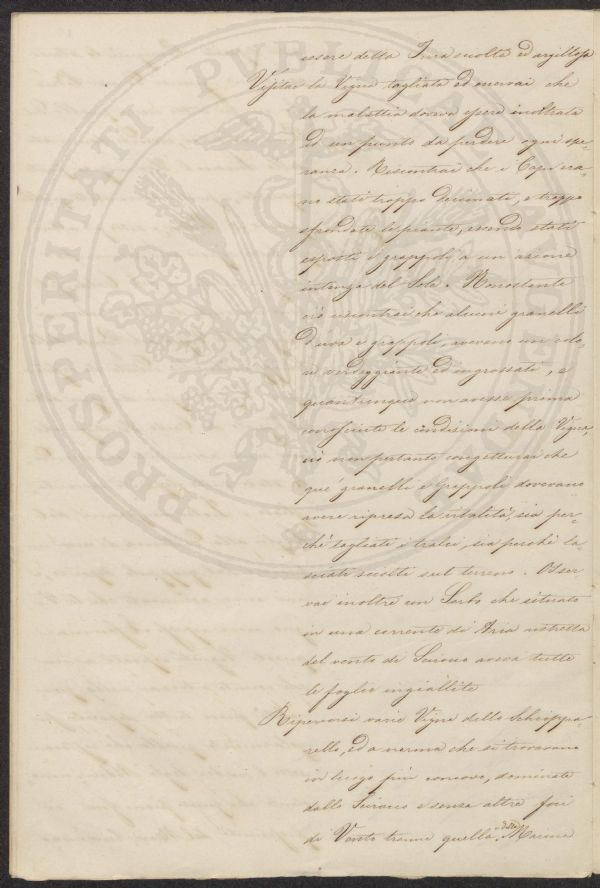 essere della Ima sciolta ed argillosa
Visitai la Vigna tagliata ed osservai che
la malattia doveva essere inoltrata
ad un punto da perdere ogni spe-
ranza. Riscontrai che i Capi era-
no stati troppo decimati, e troppo
sfrondate le piante, essendo stati
esposti i grappoli a un azione
intensa del Sole. Nonostante
ciò riscontrai che alcuni granelli
d'uva e grappoli, avevano un colo-
re verdeggiante ed ingrossati, e
quantunque non avessi prima
conosciute le condizioni della Vigna,
ciò non pertanto congetturai che
que' granelli e Grappoli dovevano
avere ripresa la vitalità, sia per-
chè tagliati i tralci, sia perchè la-
sciati sciolti sul terreno. Osser-
vai inoltre un Sorbo che situato
in una corrente di Aria ristretta
del vento di Scirocco aveva tutte
le foglie ingiallite
Ripercorsi varie Vigne dello Schioppa-
rello, ed a norma che si trovavano
in luogo più concavo, dominate
dallo Scirocco e senza altre foci
di Vento tranne quella della Marina
PROSPERITATI PVBLICAE AVGENDAE